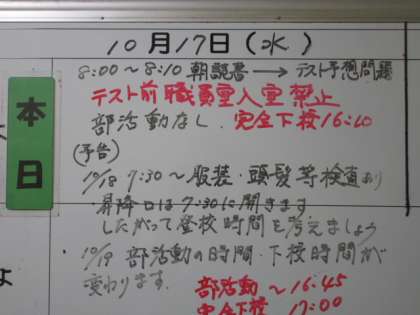 10月17日(水)
8:00〜8:10 朝読書→テスト予想問題
本日
テスト前職員室入室禁止
部活動なし. 完全下校16:20
(予告)
10/18 7:30〜服装・頭髪等検査あり
・昇降口は7:30に開きます
したがって登校時間を考えましょう
10/19 部活動の時間・下校時間が
変わります.
部活動〜16:45
完全下校 17:00